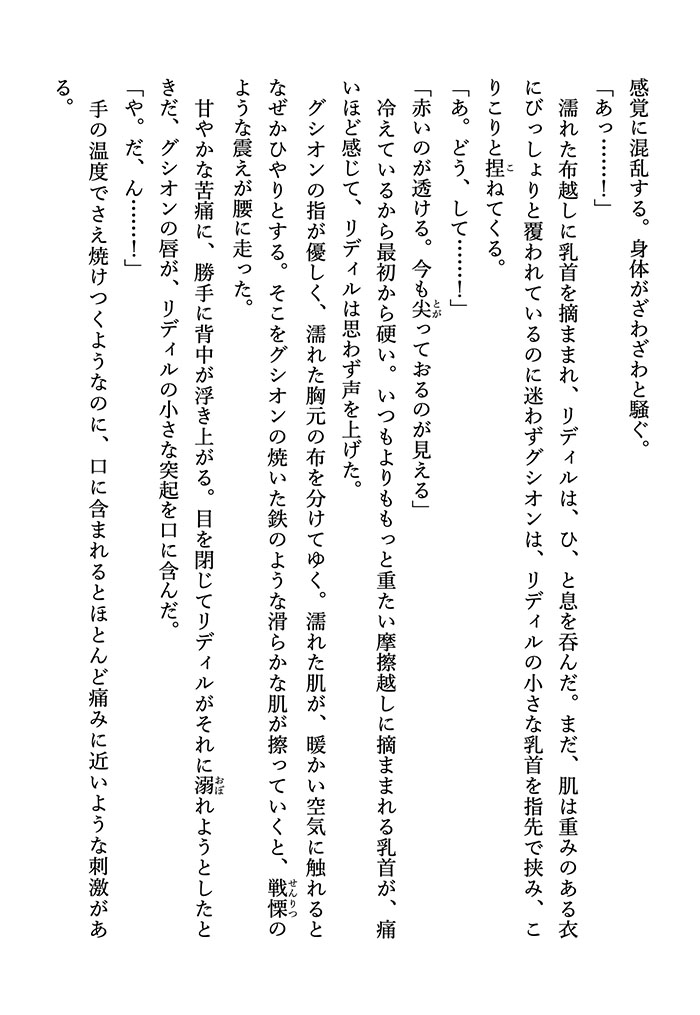 感覚に混乱する。身体がざわざわと騒ぐ。
「あっ……！」
　濡れた布越しに乳首を摘ままれ、リディルは、ひ、と息を呑んだ。まだ、肌は重みのある衣
にびっしょりと覆われているのに迷わずグシオンは、リディルの小さな乳首を指先で挟み、こ
りこりと捏こねてくる。
「あ。どう、して……！」
「赤いのが透ける。今も尖とがっておるのが見える」
　冷えているから最初から硬い。いつもよりももっと重たい摩擦越しに摘ままれる乳首が、痛
いほど感じて、リディルは思わず声を上げた。
　グシオンの指が優しく、濡れた胸元の布を分けてゆく。濡れた肌が、暖かい空気に触れると
なぜかひやりとする。そこをグシオンの焼いた鉄のような滑らかな肌が擦っていくと、戦慄せんりつの
ような震えが腰に走った。
　甘やかな苦痛に、勝手に背中が浮き上がる。目を閉じてリディルがそれに溺おぼれようとしたと
きだ、グシオンの唇が、リディルの小さな突起を口に含んだ。
「や。だ、ん……！」
　手の温度でさえ焼けつくようなのに、口に含まれるとほとんど痛みに近いような刺激があ
る。